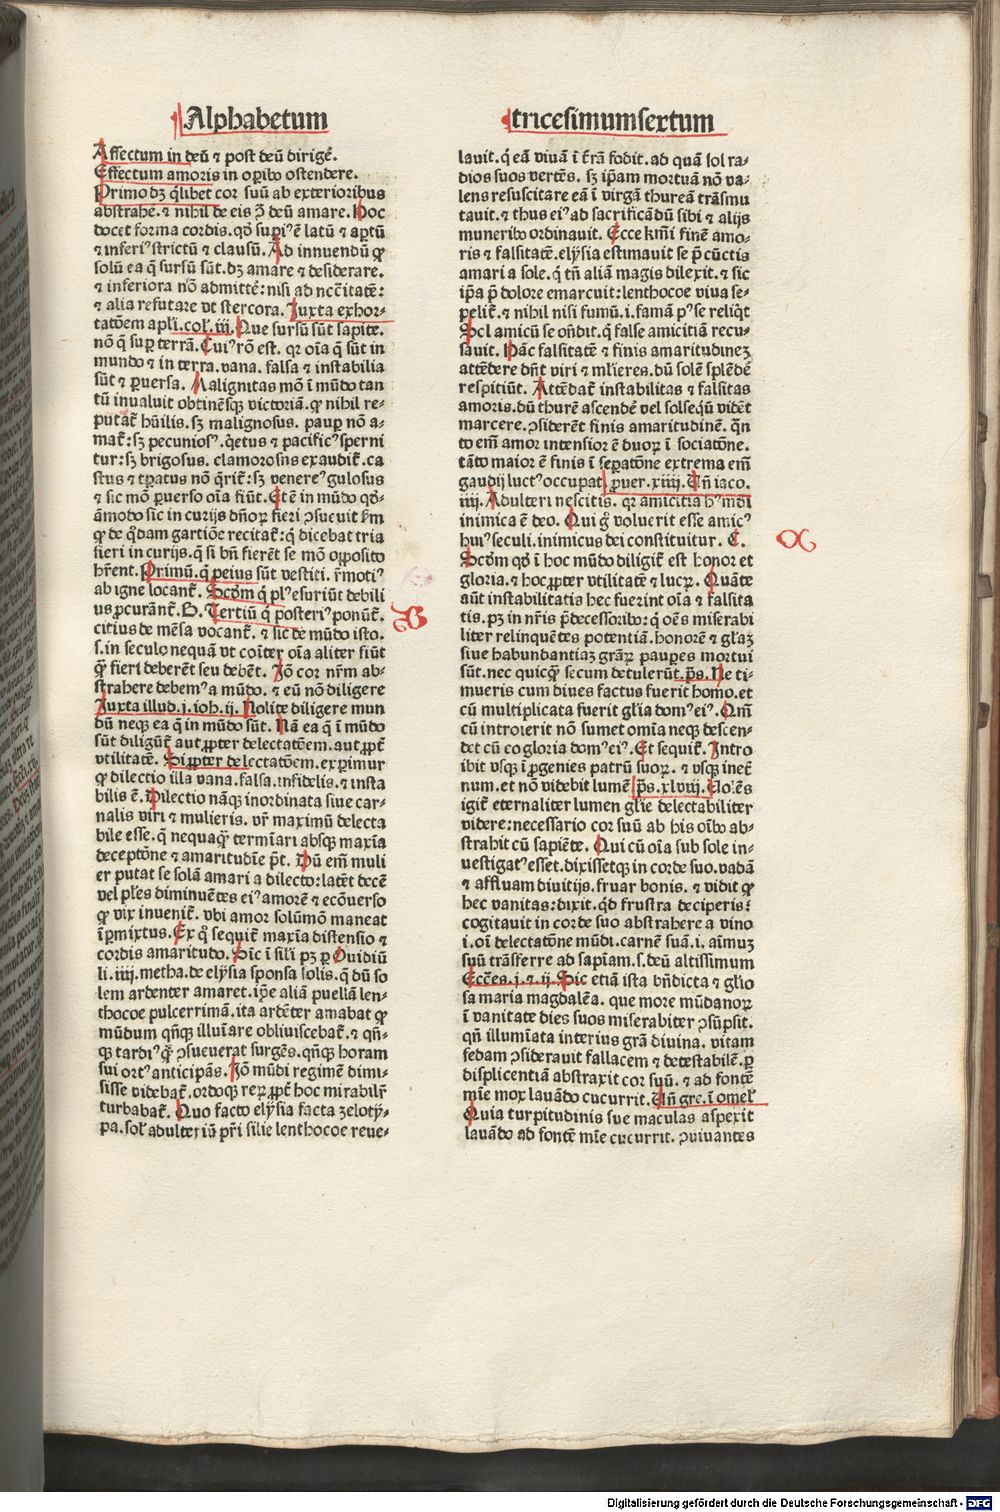 Alphabetum
tricesimumsextum
Affectum in deū ⁊ post deū dirigē.
Effectum amoris in oꝑibꝰ ostendere.
Primo dꝫ q̄libet cor suū ab exterioribus
abstrahe͛. ⁊ nihil de eis p̄ deū amare. Hoc
docet forma cordis. qd̄ supiꝰ ē latū ⁊ aꝑtū
⁊ inferiꝰ strictū ⁊ clausū. Ad innuendū ꝙ
solū ea q̄ sursū sūt. dꝫ amare ⁊ desiderare.
⁊ inferiora nō admitte͛: nisi ad nccītatē:
⁊ alia refutare vt stercora. Juxta exhor-
tatōem apl̄i. col̄. iij. Que sursū sūt sapite.
nō q̄ suꝑ terrā. Cuiꝰ rō est. qꝛ oīa q̄ sūt in
mundo ⁊ in terra. vana. falsa ⁊ instabilia
sūt ⁊ ꝑuersa. Malignitas mō ī mūdo tan
tū inualuit obtinēsqꝫ victoriā. ꝙ nihil re-
putat̄ hūilis. sꝫ malignosus. pauꝑ nō a-
mat̄: sꝫ pecuniosꝰ. q̄etus ⁊ pacificꝰ sperni
tur: sꝫ brigosus. clamorosus exaudit̄. ca
stus ⁊ tꝑatus nō q̄rit̄: sꝫ venereꝰ gulosus
⁊ sic mō ꝑuerso oīa fiūt. Et ē in mūdo qd̄-
āmodo sic in curijs dn̄oꝝ fieri ꝯsueuit km̄
ꝙ de q̄dam gartiōe recitat̄: q̄ dicebat tria
fieri in curijs. q̄ si bn̄ fierēt se mō oꝓposito
hr̄ent. Primū. q̄ peius sūt vestiti. r̄motiꝰ
ab igne locant̄. Scd̄m q̄ plꝰ esuriūt debili
us ꝓcurānt̄. B. Tertiū q̄ posteriꝰ ponūt̄.
citius de mēsa vocant̄. ⁊ sic de mūdo isto.
s. in seculo nequā vt coīter oīa aliter fiūt
q̄ fieri deberēt seu debēt. Jō cor nr̄m ab-
strahere debemꝰ a mūdo. ⁊ eū nō diligere
Juxta illud. j. ioh. ij. Nolite diligere mun
dū neqꝫ ea q̄ in mūdo sūt. Nā ea q̄ ī mūdo
sūt diligūt̄ aut ꝓpter delectatōem. aut ꝓpt̄
vtilitatē. Si ꝓpter delectatōem. exꝑimur
ꝙ dilectio illa vana. falsa. infidelis. ⁊ insta
bilis ē. Dilectio nāqꝫ inordinata siue car-
nalis viri ⁊ mulieris. vr̄ maximū delecta
bile esse. q̄ nequaqꝫ termīari absqꝫ maxīa
deceptōne ⁊ amaritudīe p̄t. Dū em̄ muli
er putat se solā amari a dilecto: latēt decē
vel pl̄es diminuētes eiꝰ amorē ⁊ ecōuerso
ꝙ vix inuenit̄. vbi amor solūmō maneat
īꝑmixtus. Ex qͦ sequit̄ maxīa distensio ⁊
cordis amaritudo. Sic ī sil̄i pꝫ ꝑ Ouidiū
li. iiij. metha. de elysia sponsa solis. q̄ dū so
lem ardenter amaret. ip̄e aliā puellā len-
thocoe pulcerrimā. ita ardēter amabat ꝙ
mūdum qn̄qꝫ illuīare obliuiscebat̄. ⁊ qn̄-
qꝫ tardiꝰ q̄ ꝯsueuerat surgēs. qn̄qꝫ horam
sui ortꝰ anticipās. Jō mūdi regimē dimi-
sisse videbat̄. ordoqꝫ reꝝ ꝓpt̄ hoc mirabilr̄
turbabat̄. Quo facto elysia facta zeloty-
pa. sol̄ adulteriū pr̄i silie lenthocoe reue-
lauit. q̄ eā viuā ī t̄rā fodit. ad quā sol ra-
dios suos vertēs. sꝫ ip̄am mortuā nō va-
lens resuscitare eā ī virgā thureā trāsmu
tauit. ⁊ thus eiꝰ ad sacrificādū sibi ⁊ alijs
muneribꝰ ordinauit. Ecce km̄i finē amo-
ris ⁊ falsitatē. elysia estimauit se p̄ cūctis
amari a sole. q̄ tn̄ aliā magis dilexit. ⁊ sic
ip̄a p̄ dolore emarcuit: lenthocoe viua se-
pelit̄. ⁊ nihil nisi fumū. i. famā pꝰ se reliq̄t
Scl amicū se on̄dit. q̄ false amicitiā recu-
sauit. Hāc falsitatē ⁊ finis amaritudinez
attēdere dn̄t viri ⁊ ml̄ieres. dū solē splēdē
respitiūt. Attēdat̄ instabilitas ⁊ falsitas
amoris. dū thurē ascendē vel solsequū vidēt
marcere. ꝯsiderēt finis amaritudinē. q̄n
to em̄ amor intensior ē duoꝝ ī sociatōne.
tāto maior ē finis ī seꝑatōne extrema em̄
gaudij luctꝰ occupat. ꝓuer. xiiij. Un̄ iaco.
iiij. Adulteri nescitis. qꝛ amicitia hꝰ mūdi
inimica ē deo. Qui gͦ voluerit esse amicꝰ
huiꝰ seculi. inimicus dei constituitur. C.
Scd̄m qd̄ ī hoc mūdo diligit̄ est honor et
gloria. ⁊ hoc ꝓpter vtilitatē ⁊ lucꝝ. Quāte
aūt instabilitatis hec fuerint oīa ⁊ falsita
tis. pꝫ in nr̄is p̄decessoribꝰ: q̄ oēs miserabi
liter relinquētes potentiā. honorē ⁊ gl̄aꝫ
siue habundantiaꝫ grāꝝ pauꝑes mortui
sūt. nec quicq̄ secum detulerūt. p̄s. Ne ti-
mueris cum diues factus fuerit homo. et
cū multiplicata fuerit gl̄ia domꝰ eiꝰ. Qm̄
cū introierit nō sumet omīa neqꝫ descen-
det cū eo gloria domꝰ eiꝰ. Et sequit̄. Intro
ibit vsqꝫ ī ꝓgenies patrū suoꝝ. ⁊ vsqꝫ inet̄
num. et nō videbit lumē p̄s. xlviij. Uolēs
igit̄ eternaliter lumen gl̄ie delectabiliter
videre: necessario cor suū ab his oībꝰ ab-
strahit cū sapiēte. Qui cū oīa sub sole in-
uestigatꝰ esset. dixissetqꝫ in corde suo. vadā
⁊ affluam diuitijs. fruar bonis. ⁊ vidit ꝙ
hec vanitas: dixit. qd̄ frustra deciperis?
cogitauit in corde suo abstrahere a vino
i. oī delectatōne mūdi. carnē suā. i. aīmuꝫ
suū trāsferre ad sap̄iam. s. deū altissimum
Ecc̄es. j. ⁊. ij. Sic etiā ista bn̄dicta ⁊ glio
sa maria magdalēa. que more mūdanoꝝ
ī vanitate dies suos miserabiter ꝯsūpsit.
qn̄ illumīata interius grā diuina. vitam
fedam ꝯsiderauit fallacem ⁊ detestabilē. ꝑ
displicentiā abstraxit cor suū. ⁊ ad fontē
mīe mox lauādo cucurrit. Un̄ gre. ī omel̄
Quia turpitudinis sue maculas aspexit
lauādo ad fontē mīe cucurrit. ꝯuiuantes
B
C
Digitalisierung gefördert durch die Deutsche Forschungsgemeinschaft - DFG